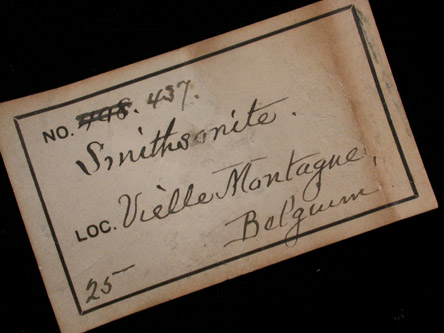 NO. 798. 437.
Smithsonite.
LOC. Vièlle Montagne,
Belgium
25